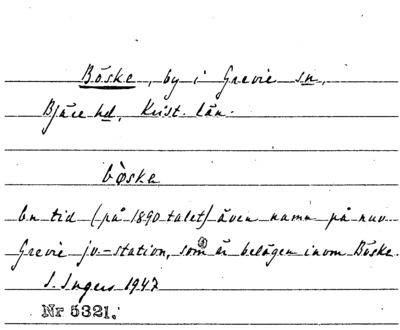 Böske, by i Grevie sn,
Bjäre hd, Krist. län.
bòska
En tid (på 1890-talet) även namn på nuv.
Grevie jv.-station, som är belägen inom Böske.
I. Ingers 1947
Nr 5321.